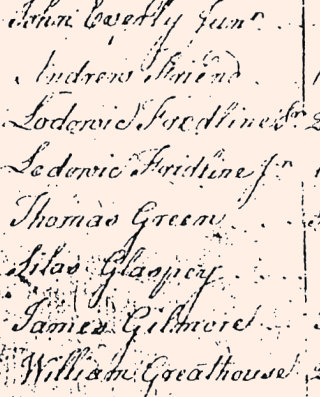 John Everly Junr
Andrew Friend
Lodowic Fredline Sr
Lodowic Fridline Jr
Thomas Green
Silas Glaspey
James Gilmore
William Greathouse